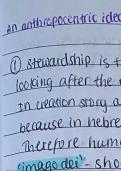 An anthropocentric idea
① stewardship is t
looking after the
in creation story a
because in hebre
Therefore hum
"imago dei" - sho